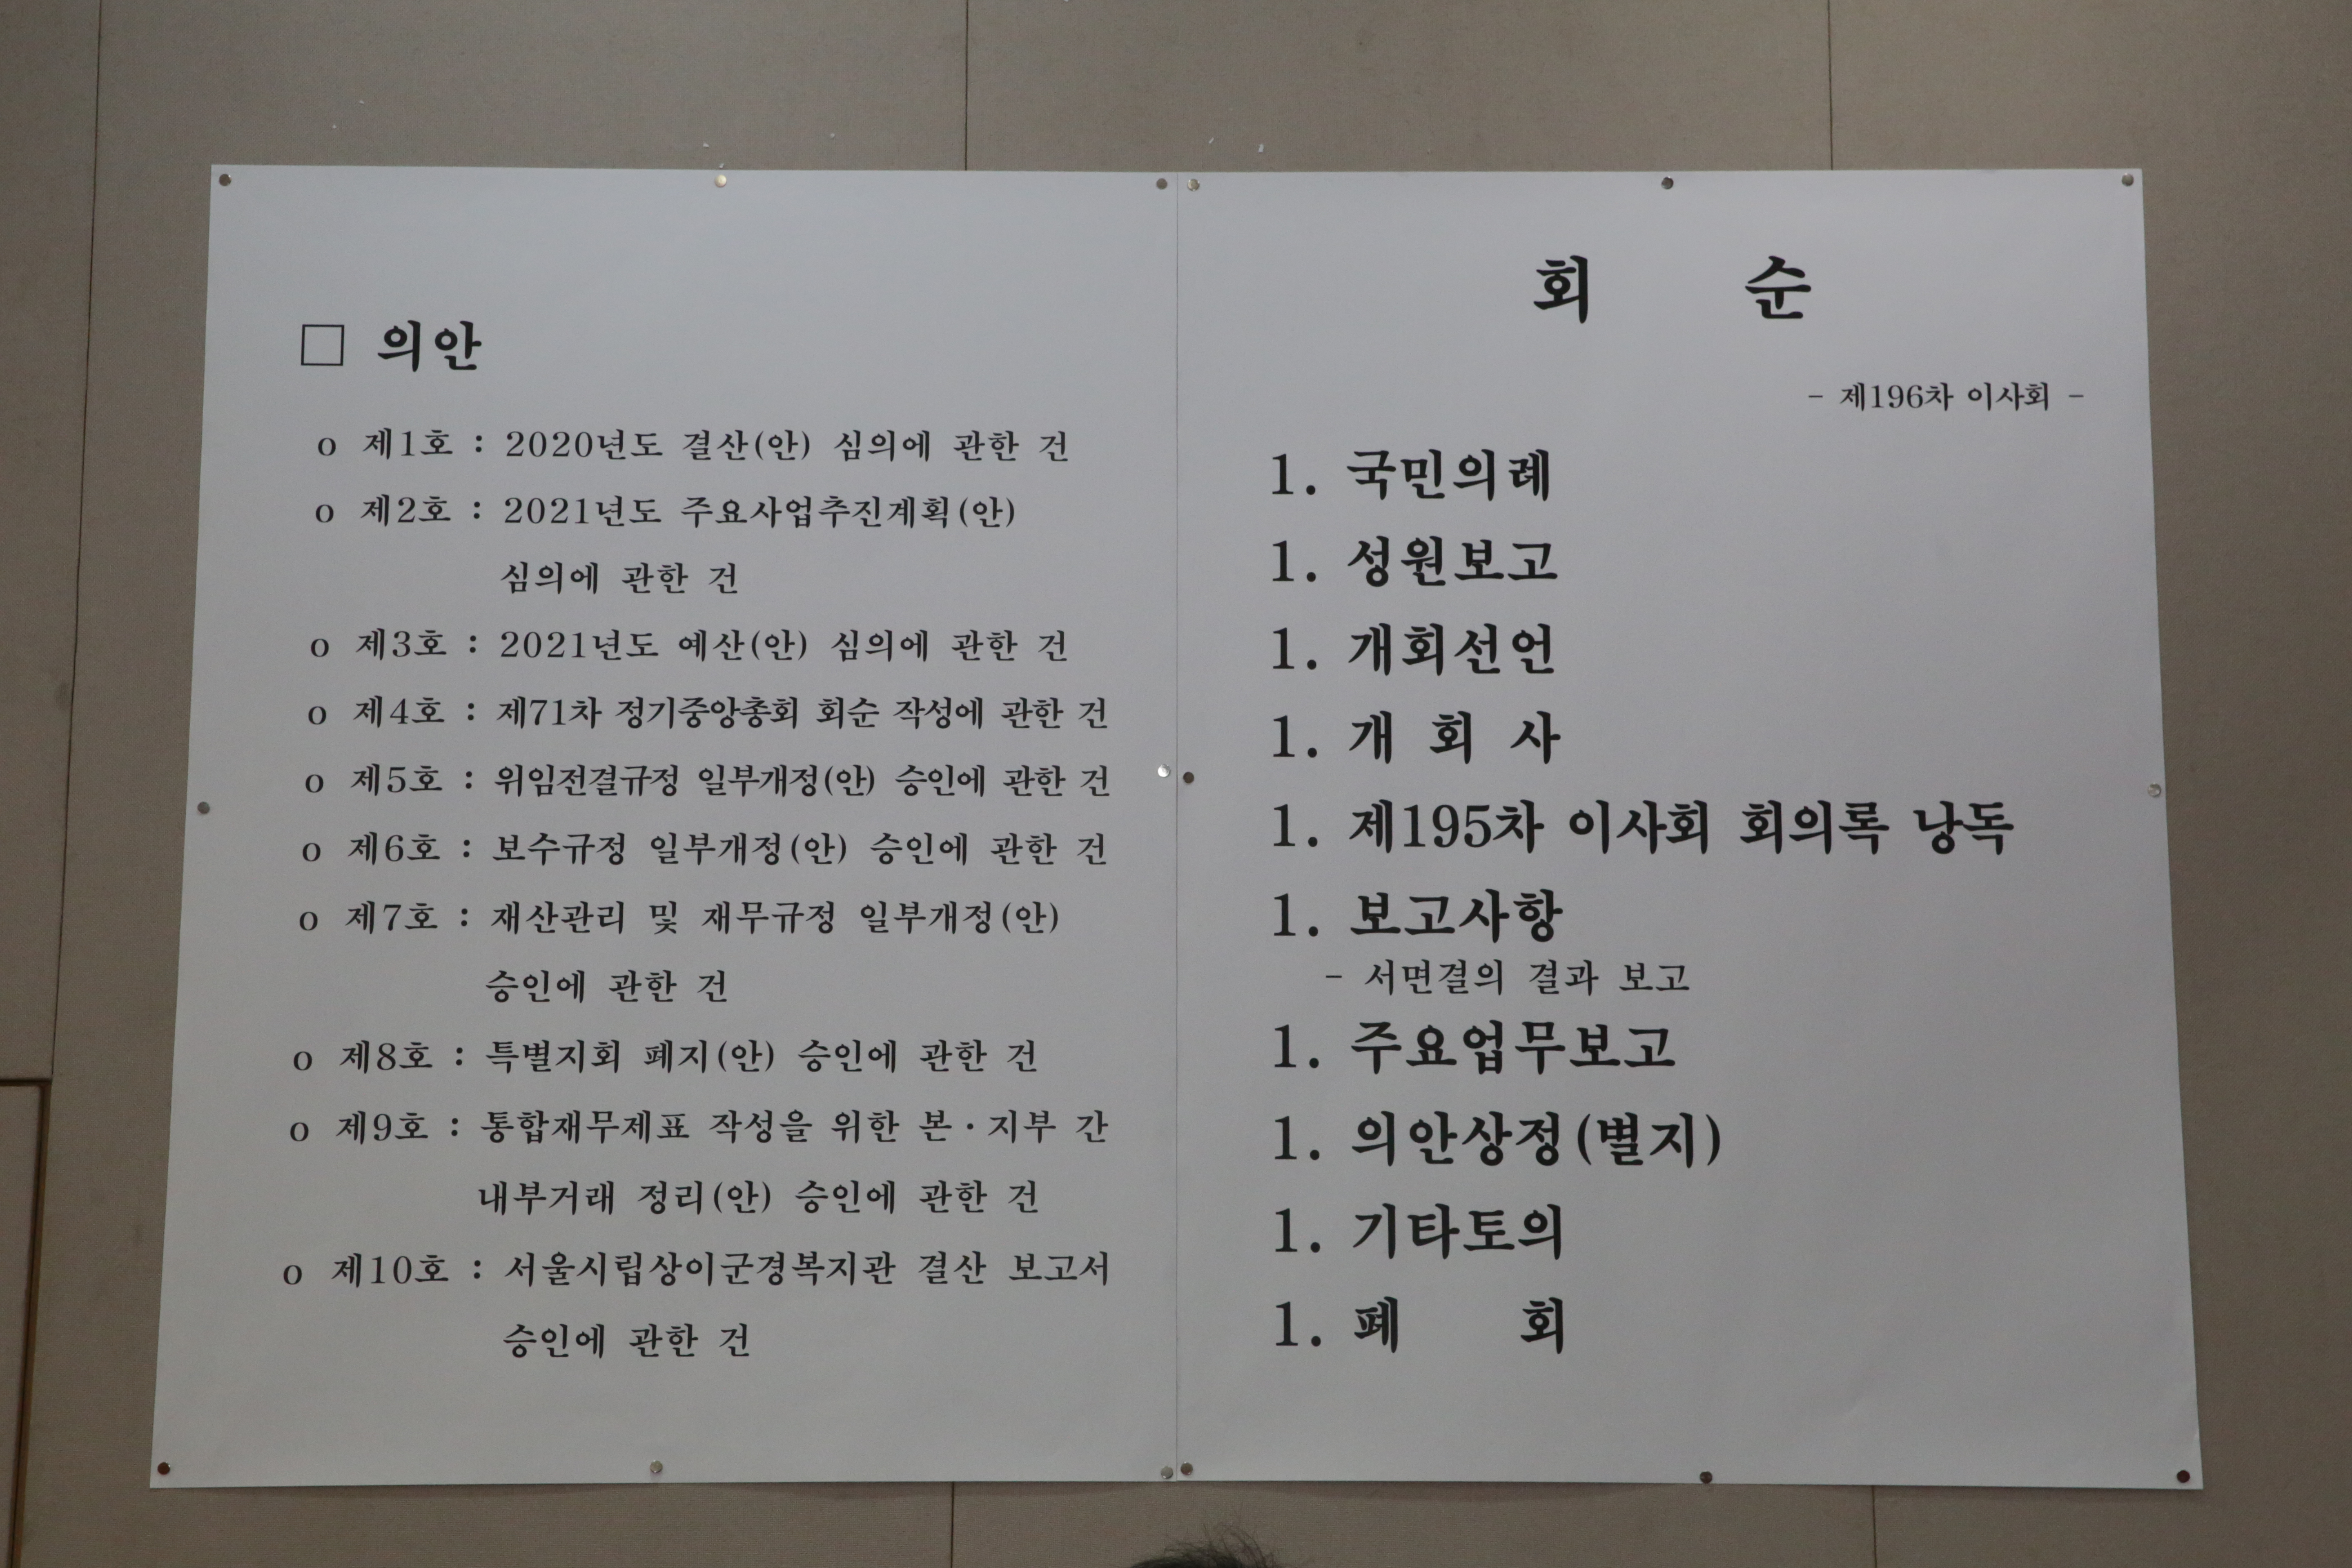 □ 의안
o 제1호 : 2020년도 결산(안) 심의에 관한 건
o 제2호 : 2021년도 주요사업추진계획(안)
심의에 관한 건
o 제3호 : 2021년도 예산(안) 심의에 관한 건
o 제4호 : 제71차 정기중앙총회 회순 작성에 관한 건
o 제5호 : 위임전결규정 일부개정(안) 승인에 관한 건
o 제6호 : 보수규정 일부개정(안) 승인에 관한 건
o 제7호 : 재산관리 및 재무규정 일부개정(안)
승인에 관한 건
o 제8호 : 특별지회 폐지(안) 승인에 관한 건
o 제9호 : 통합재무제표 작성을 위한 본·지부 간
내부거래 정리(안) 승인에 관한 건
o 제10호 : 서울시립상이군경복지관 결산 보고서
승인에 관한 건
회 순
- 제196차 이사회 -
1. 국민의례
1. 성원보고
1. 개회선언
1. 개 회 사
1. 제195차 이사회 회의록 낭독
1. 보고사항
- 서면결의 결과 보고
1. 주요업무보고
1. 의안상정(별지)
1. 기타토의
1. 폐 회